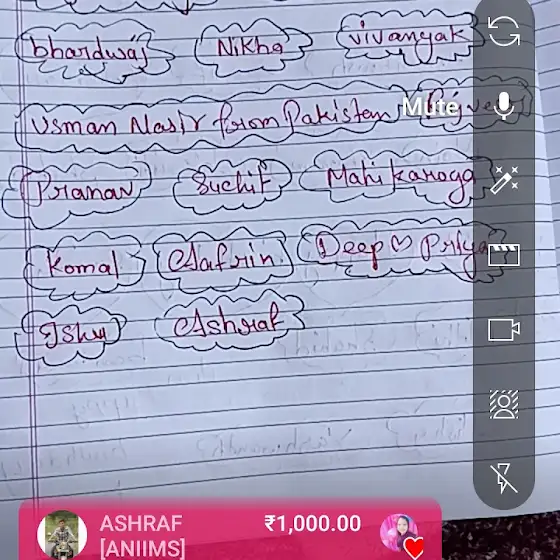 bhardwaj Nikha vivanyak
Usman Nasir from Pakistan
Mute
Pranav Suchit Mahi karoga
Komal Aafrin Deep ♡ Priya
Ishu Ashraf
ASHRAF ₹1,000.00
[ANIIMS]